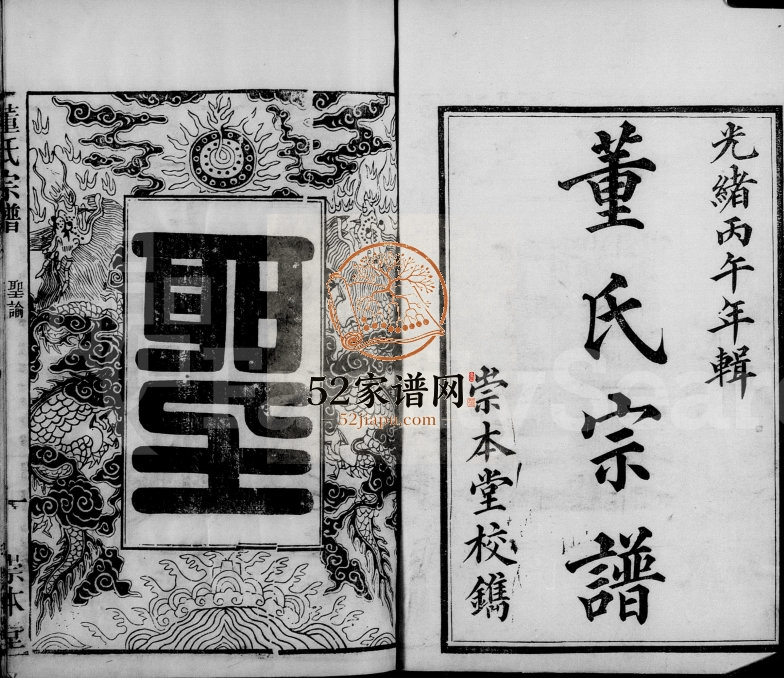 光緒丙午年輯
董氏宗譜
崇本堂校鐫
聖
董氏宗譜
聖諭
一
崇本堂
52家谱网
52jiapu.com